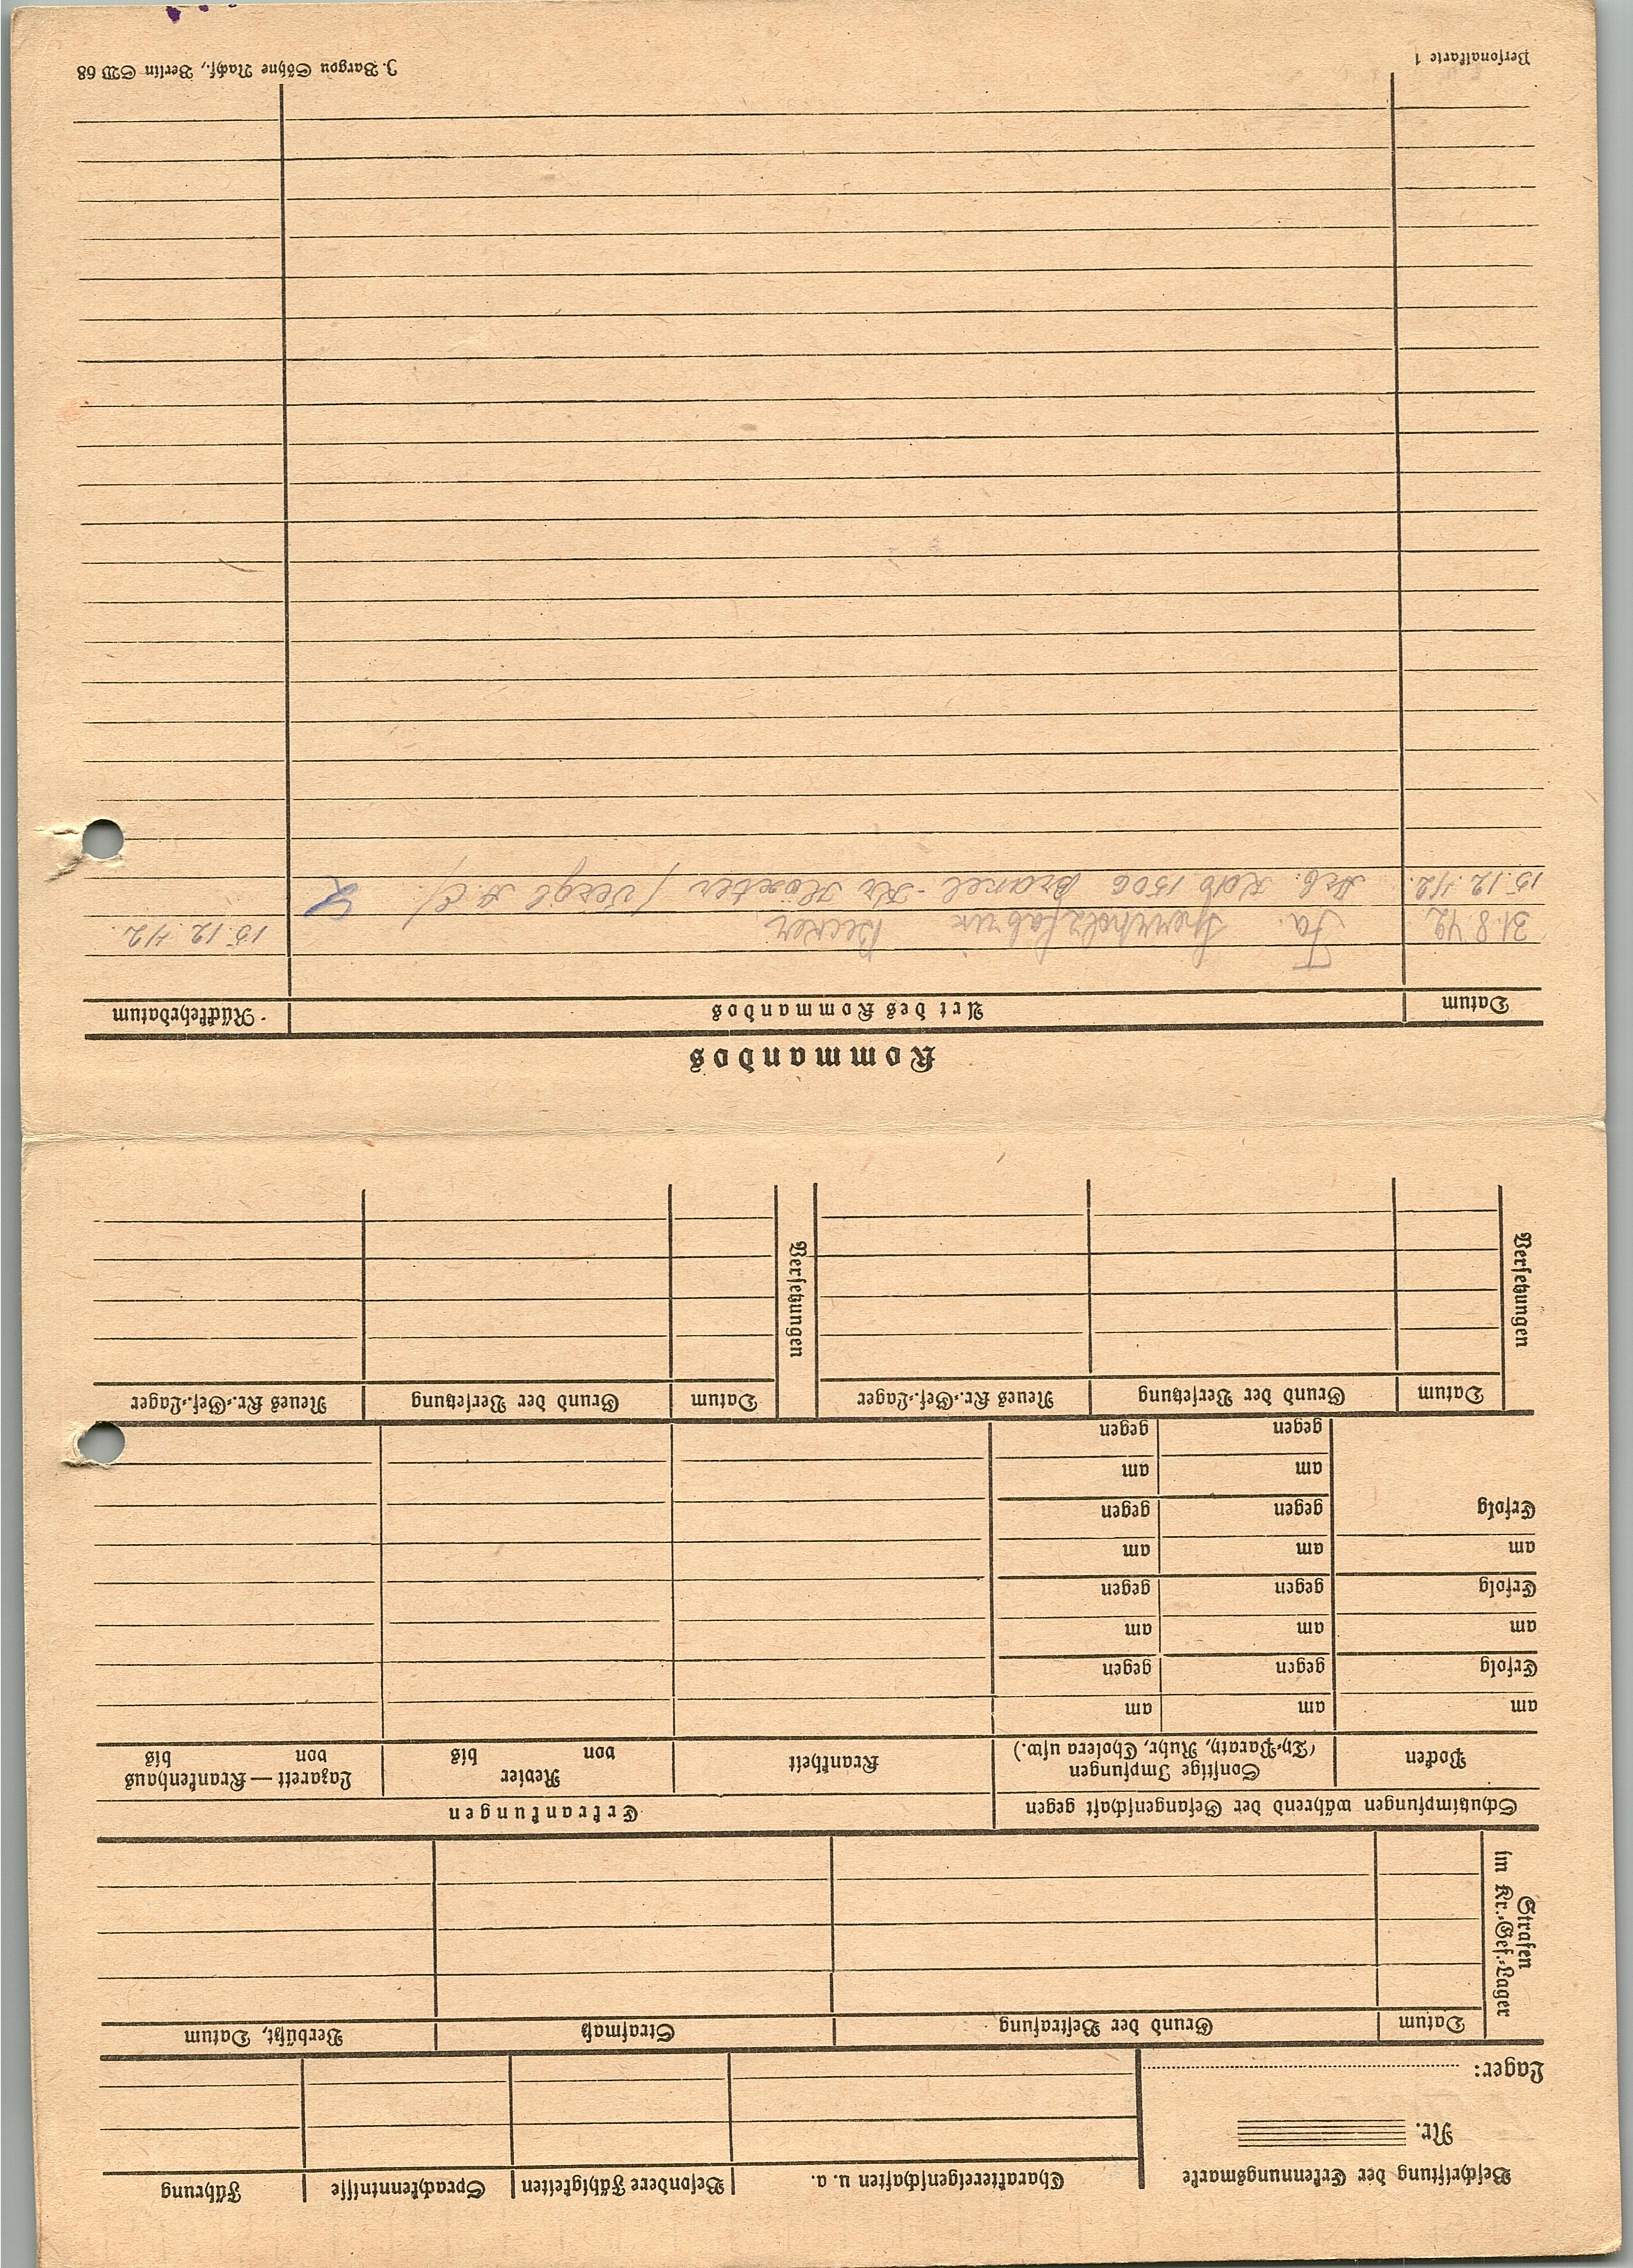 Beschriftung der Erkennungsmarke
Nr.
Lager:
Charaktereigenschaften u. a.
Besondere Fähigkeiten
Sprachkenntnisse
Führung
Strafen
im Kr.-Gef.-Lager
Datum
Grund der Bestrafung
Strafmaß
Verbüßt, Datum
Schutzimpfungen während der Gefangenschaft gegen
Erkrankungen
Pocken
Sonstige Impfungen
(Ty-Paraty, Ruhr, Cholera usw.)
Krankheit
Revier
von bis
Lazarett — Krankenhaus
von bis
am am am
Erfolg gegen gegen
am am am
Erfolg gegen gegen
am am am
Erfolg gegen gegen
am am
gegen gegen
Versetzungen
Datum
Grund der Versetzung
Neues Kr.-Gef.-Lager
Versetzungen
Datum
Grund der Versetzung
Neues Kr.-Gef.-Lager
Kommandos
Datum
Art des Kommandos
Rückkehrdatum
31.8.42 Fa. Sperrholzfabrik Becker 15.12.42
15.12.42. Arb. Kdo 1506 Brakel - Kr Höxter
Personalkarte 1
J. Bargou Söhne Nachf., Berlin SW 68